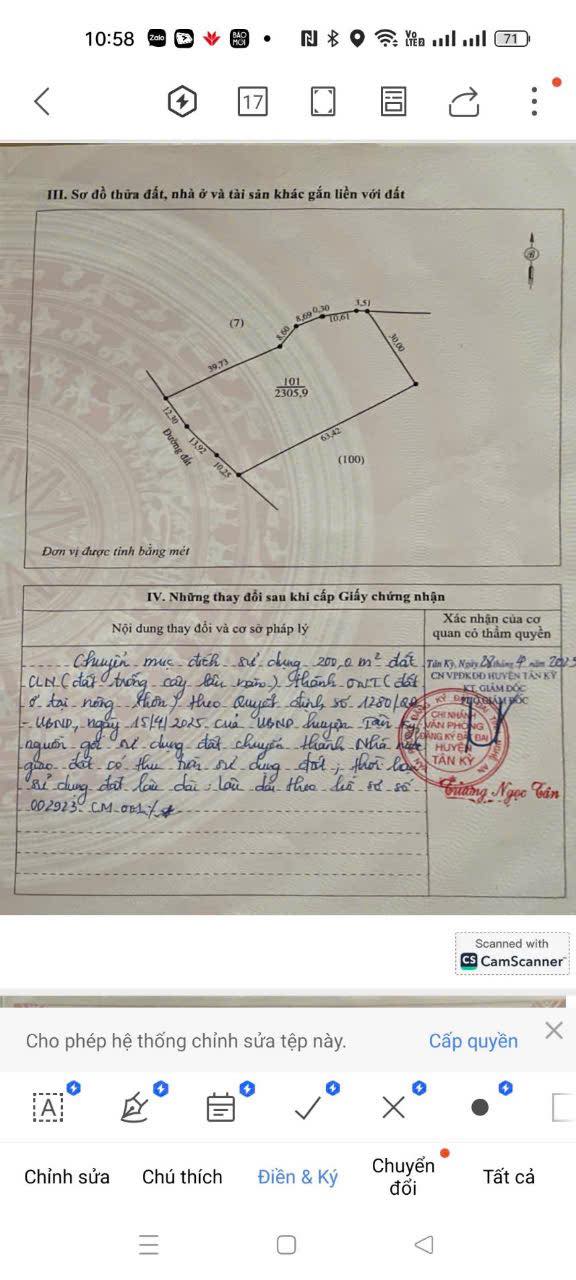 10:58
Zalo
BÁO MỚI
Vo LTE 2
71
17
III. Sơ đồ thửa đất, nhà ở và tài sản khác gắn liền với đất
(7)
39,73
8,60
8,69
0,30
10,61
3,51
30,00
101
2305,9
12,30
13,92
10,25
Đường đất
63,42
(100)
Đơn vị được tính bằng mét
IV. Những thay đổi sau khi cấp Giấy chứng nhận
Nội dung thay đổi và cơ sở pháp lý
Xác nhận của cơ quan có thẩm quyền
Chuyển mục đích sử dụng 200,0 m² đất
CLN (đất trồng cây lâu năm) thành ONT (đất
ở tại nông thôn) theo Quyết định số 1280/QĐ
- UBND, ngày 15/4/2025 của UBND huyện Tân Kỳ
nguồn gốc sử dụng đất chuyển thành Nhà nước
giao đất có thu tiền sử dụng đất; thời hạn
sử dụng đất lâu dài: Lâu dài theo hồ sơ số
002923. CM.001/.
Tân Kỳ, Ngày 28 tháng 4 năm 2025
CN VPĐKĐĐ HUYỆN TÂN KỲ
KT. GIÁM ĐỐC
PHÓ GIÁM ĐỐC
CHI NHÁNH
VĂN PHÒNG
ĐĂNG KÝ ĐẤT ĐAI
HUYỆN
TÂN KỲ
Trương Ngọc Tân
Scanned with
CS CamScanner
Cho phép hệ thống chỉnh sửa tệp này.
Cấp quyền
A
Chỉnh sửa
Chú thích
Điền & Ký
Chuyển đổi
Tất cả